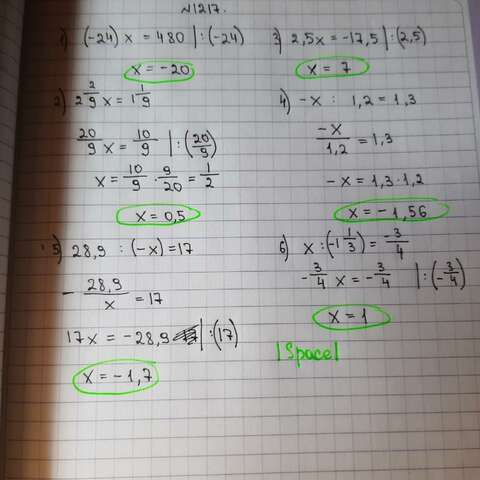 №1217.
1) (-24) x = 480 | : (-24)
x = -20
2) 2 2/9 x = 1 1/9
20/9 x = 10/9 | : (20/9)
x = 10/9 · 9/20 = 1/2
x = 0,5
3) 2,5x = -17,5 | : (2,5)
x = 7
4) -x : 1,2 = 1,3
-x/1,2 = 1,3
-x = 1,3 · 1,2
x = -1,56
5) 28,9 : (-x) = 17
- 28,9/x = 17
17x = -28,9 | : (17)
x = -1,7
6) x : (-1 1/3) = -3/4
-3/4 x = -3/4 | : (-3/4)
x = 1
|Space|